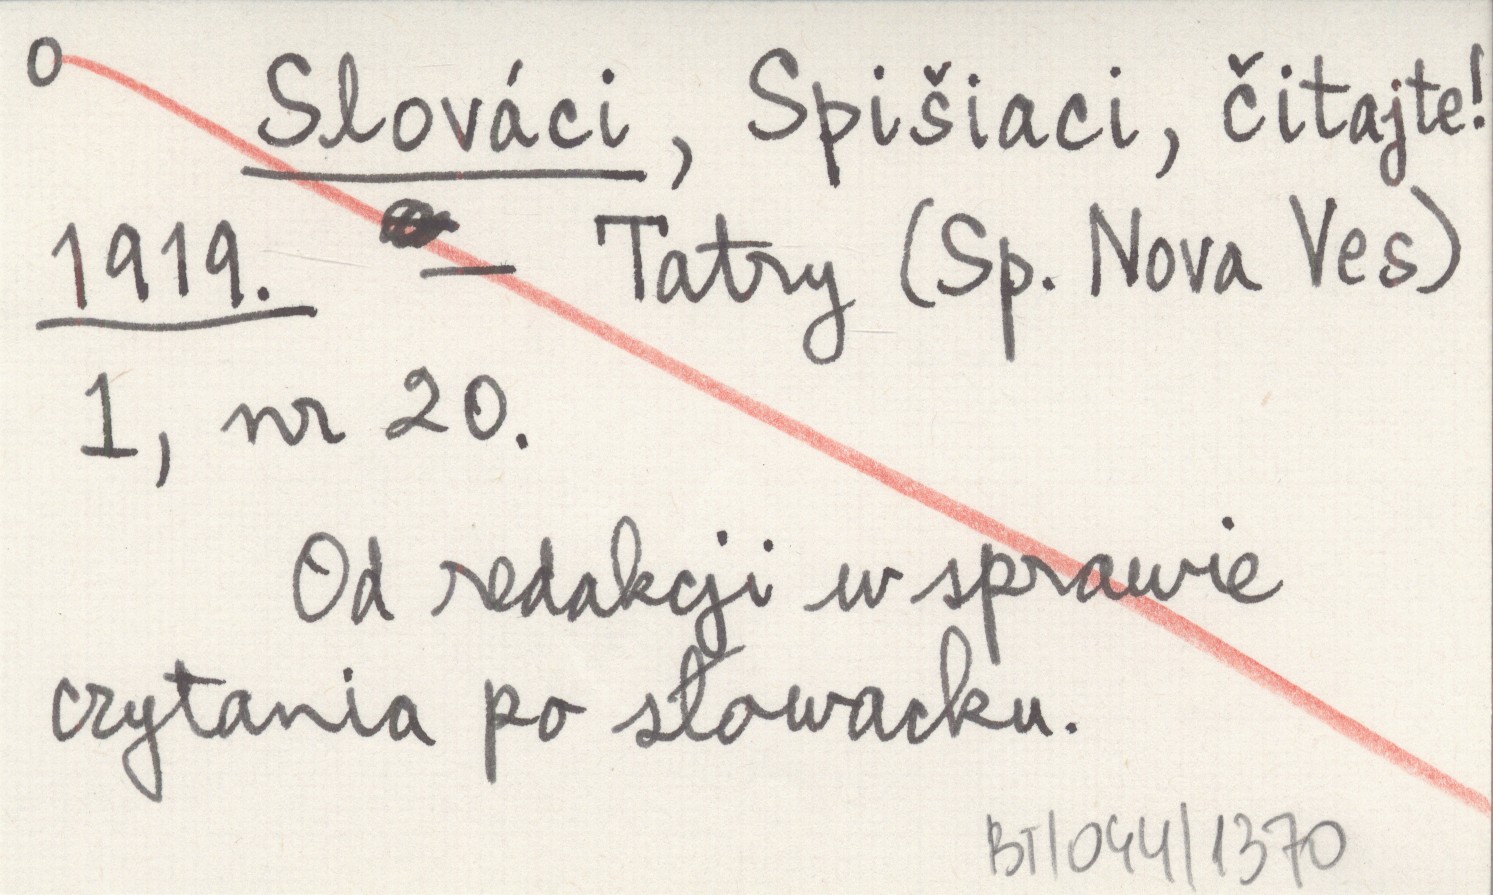 o
Slováci, Spišiaci, čitajte!
1919. — Tatry (Sp. Nova Ves)
1, nr 20.
Od redakcji w sprawie
czytania po słowacku.
BT/044/1370